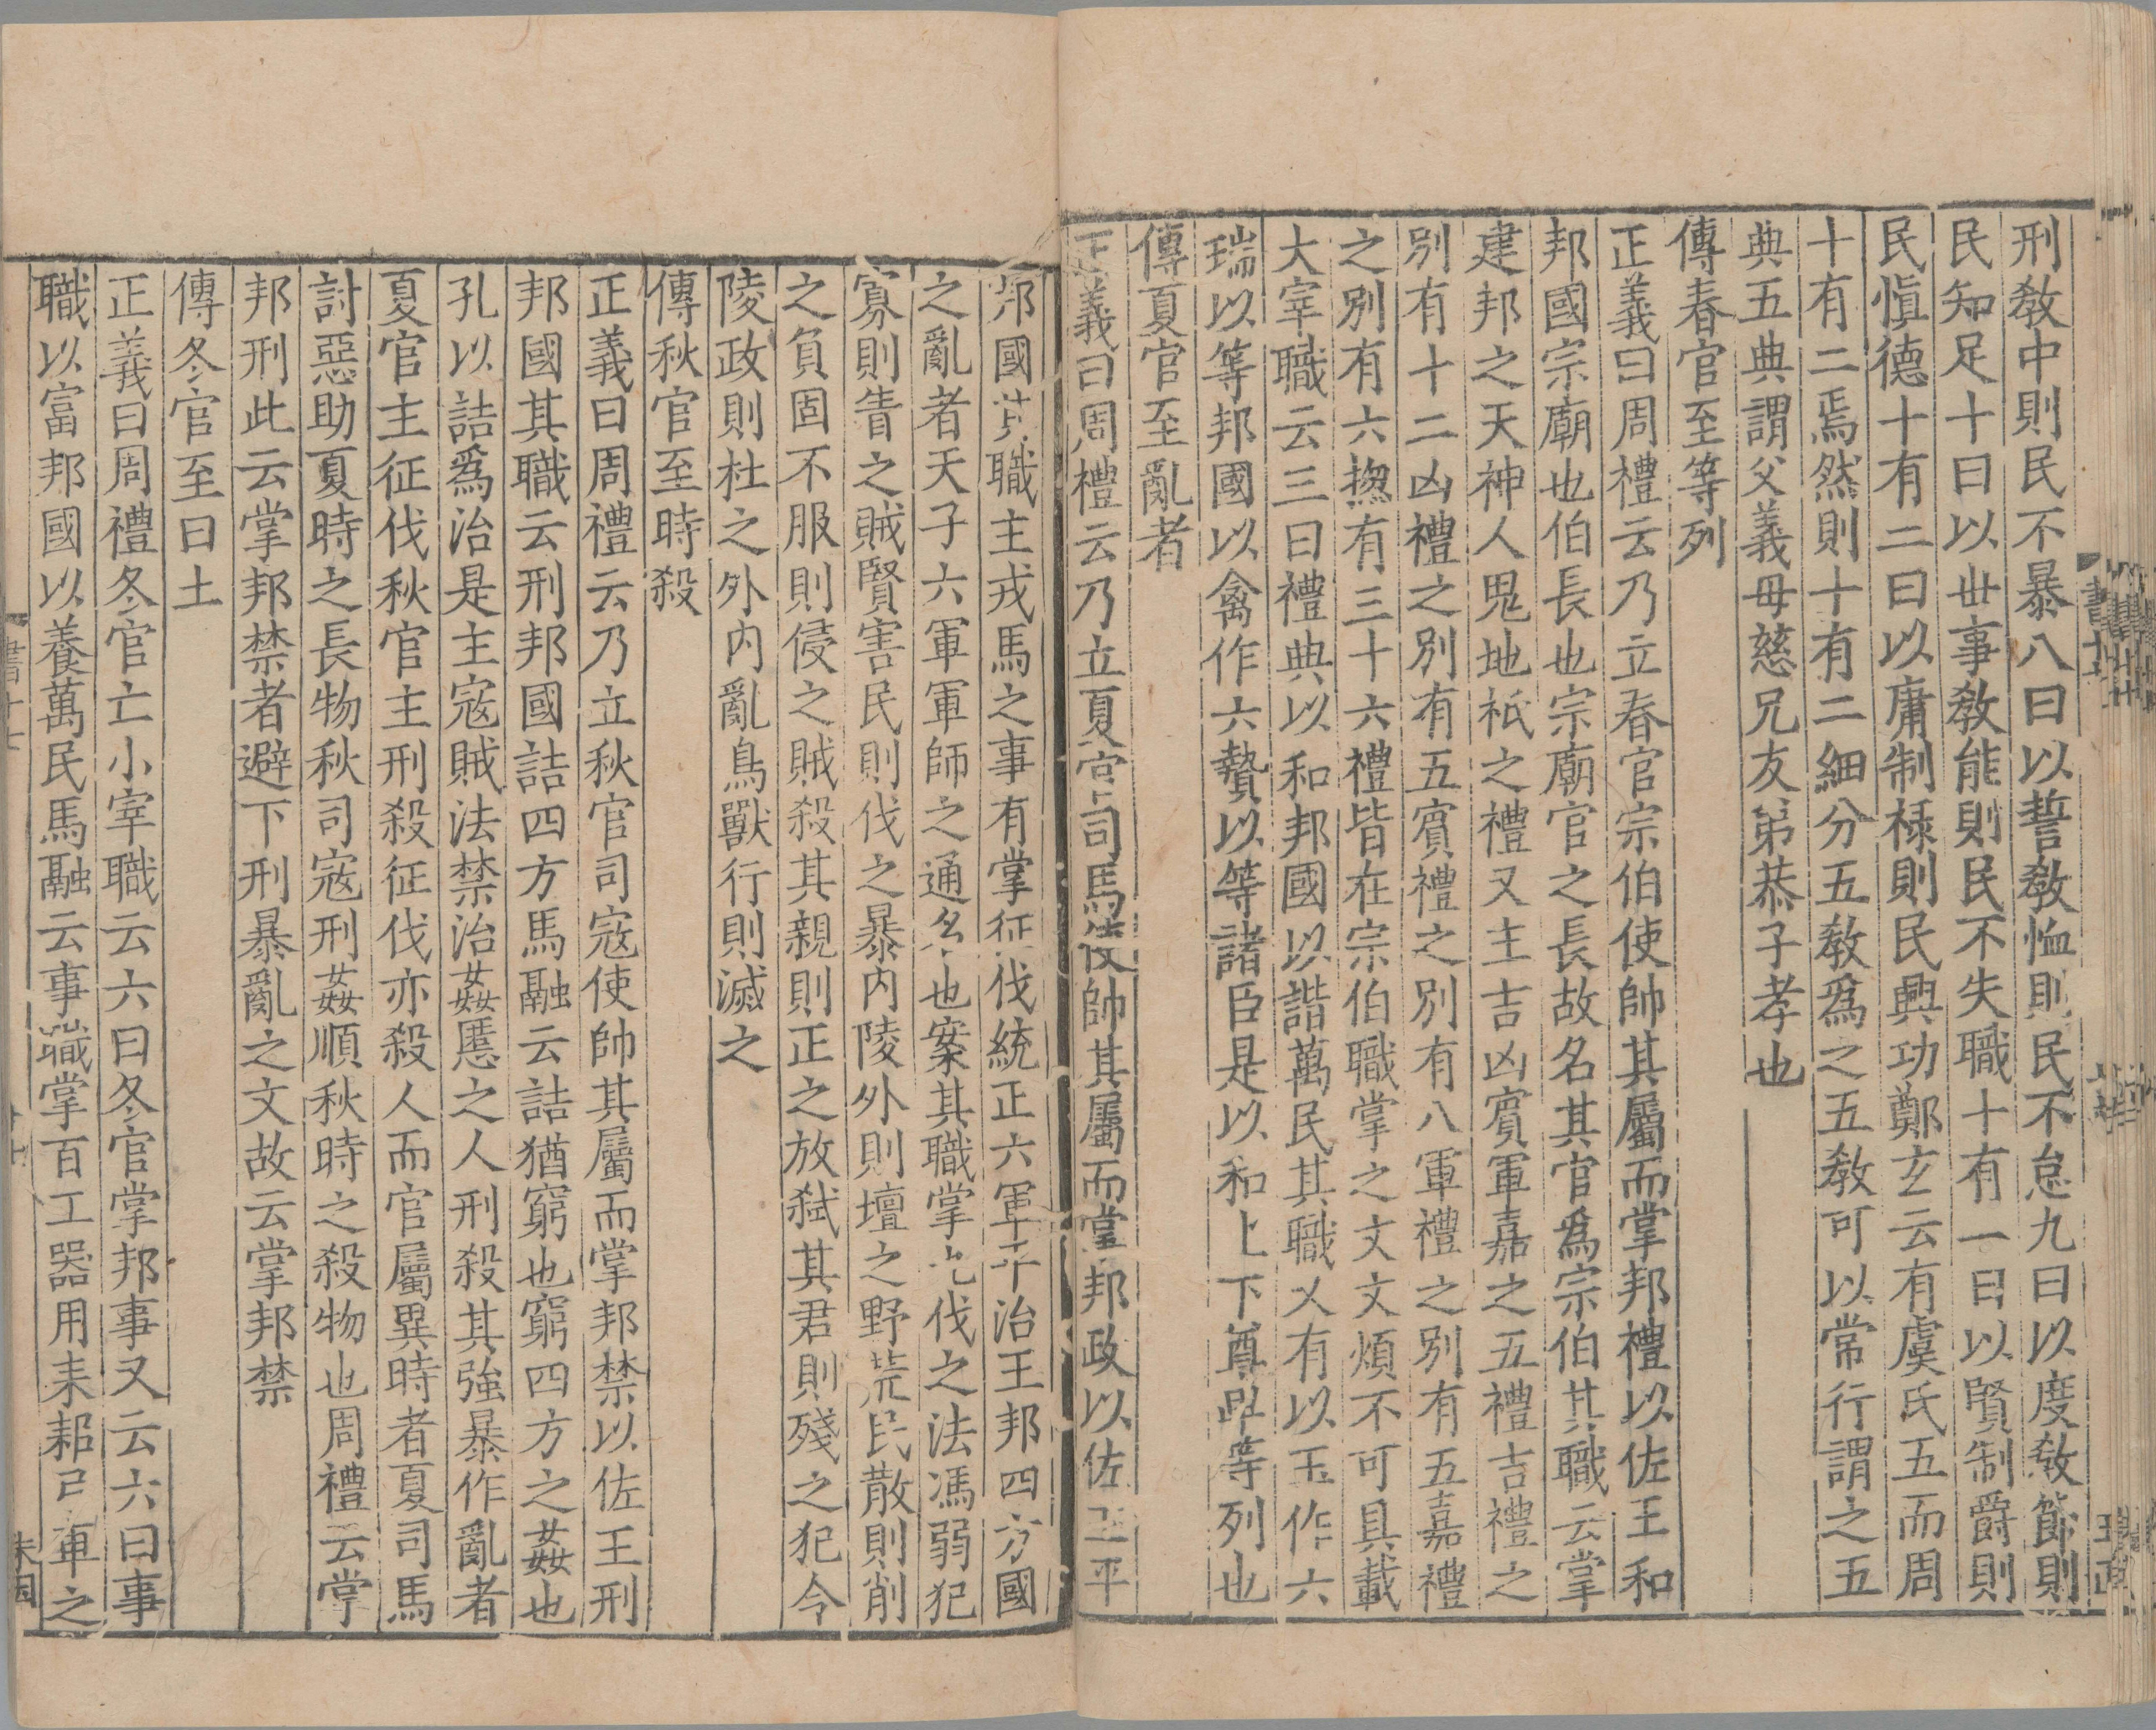 刑敎中則民不暴八曰以誓敎恤則民不怠九曰以度敎節則
民知足十曰以丗事敎能則民不失職十有一曰以賢制爵則
民愼德十有二曰以庸制祿則民興功鄭玄云有虞氏五而周
十有二焉然則十有二細分五敎爲之五敎可以常行謂之五
典五典謂父義母慈兄友弟恭子孝也
傳春官至等列
正義曰周禮云乃立春官宗伯使帥其屬而掌邦禮以佐王和
邦國宗廟也伯長也宗廟官之長故名其官爲宗伯其職云掌
建邦之天神人鬼地祇之禮又主吉凶賓軍嘉之五禮吉禮之
別有十二凶禮之別有五賓禮之別有八軍禮之別有五嘉禮
之別有六揔有三十六禮皆在宗伯職掌之文文煩不可具載
大宰職云三曰禮典以和邦國以諧萬民其職又有以玉作六
瑞以等邦國以禽作六贄以等諸臣是以和上下尊卑等列也
傳夏官至亂者
正義曰周禮云乃立夏官司馬使帥其屬而掌邦政以佐王平
邦國其職主戎馬之事有掌征伐統正六軍平治王邦四方國
之亂者天子六軍軍師之通名也案其職掌九伐之法馮弱犯
寡則眚之賊賢害民則伐之暴内陵外則壇之野荒民散則削
之負固不服則侵之賊殺其親則正之放弑其君則殘之犯令
陵政則杜之外内亂鳥獸行則滅之
傳秋官至時殺
正義曰周禮云乃立秋官司寇使帥其屬而掌邦禁以佐王刑
邦國其職云刑邦國詰四方馬融云詰猶窮也窮四方之姦也
孔以詰爲治是主寇賊法禁治姦慝之人刑殺其強暴作亂者
夏官主征伐秋官主刑殺征伐亦殺人而官屬異時者夏司馬
討惡助夏時之長物秋司寇刑姦順秋時之殺物也周禮云掌
邦刑此云掌邦禁者避下刑暴亂之文故云掌邦禁
傳冬官至曰土
正義曰周禮冬官亡小宰職云六曰冬官掌邦事又云六曰事
職以富邦國以養萬民馬融云事職掌百工器用耒耜弓車之